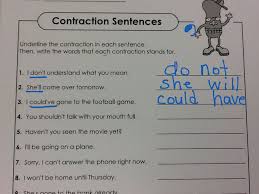 Contraction Sentences
Underline the contraction in each sentence.
Then, write the words that each contraction stands for.
1. I don't understand what you mean. do not
2. She'll come over tomorrow. she will
3. I could've gone to the football game. could have
4. You shouldn't talk with your mouth full
5. Haven't you seen the movie yet?
6. I'll be going on a plane.
7. Sorry, I can't answer the phone right now.
8. I won't be home until Thursday.